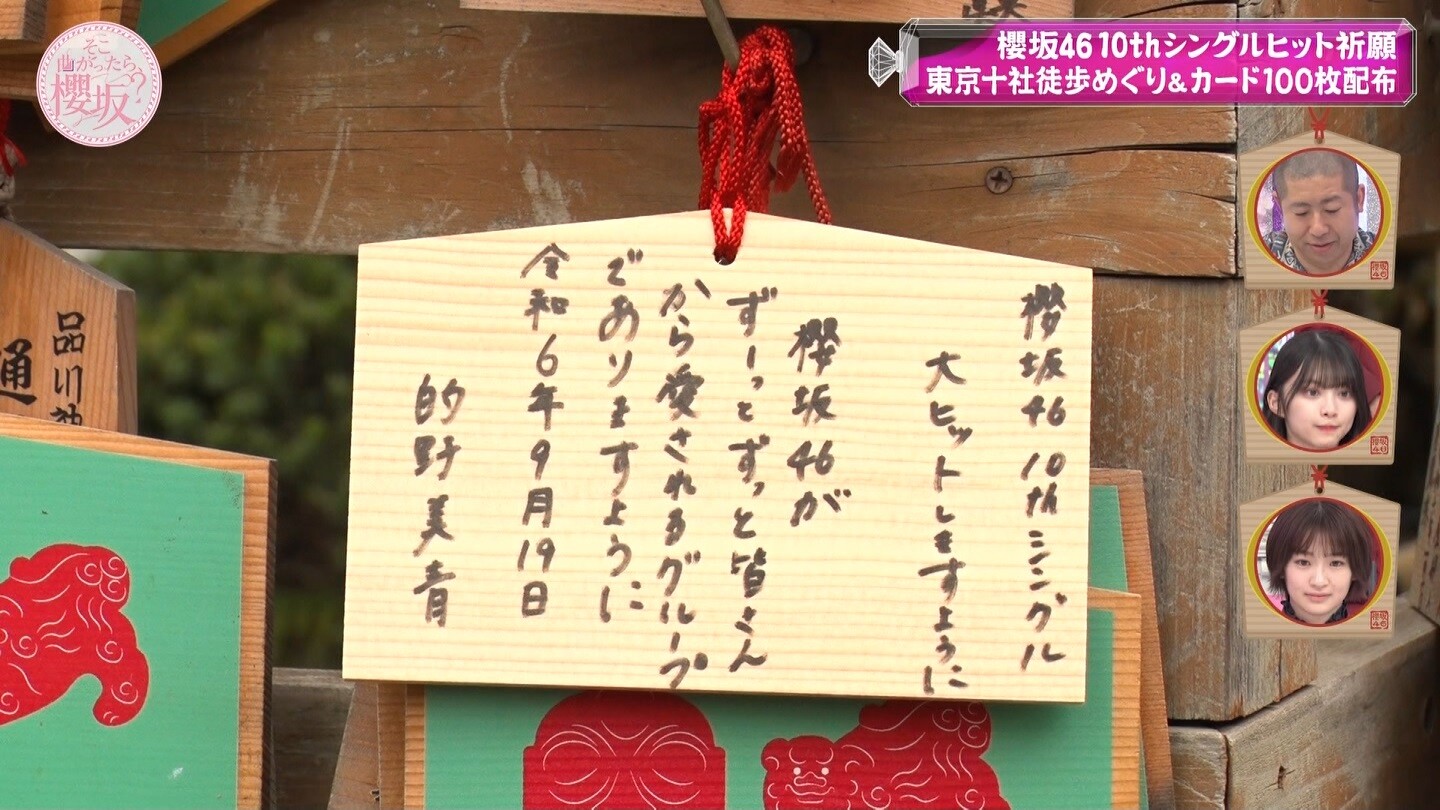 そこ
曲がったら、
櫻坂?
櫻坂46 10thシングルヒット祈願
東京十社徒歩めぐり&カード100枚配布
櫻坂46 10thシングル
大ヒットしますように
櫻坂46が
ずーっとずっと皆さん
から愛されるグループ
でありますように
令和6年9月19日
的野美青
品川神
通
櫻坂
46
櫻坂
46
櫻坂
46